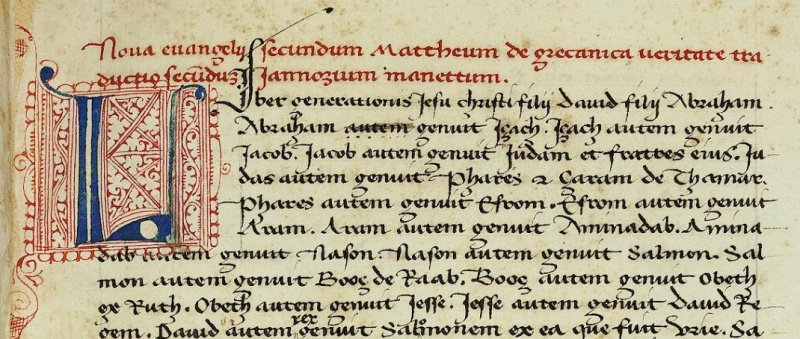 Nova evangelij secundum Mattheum de grecanica veritate tra
ductio secūduʒ Jannozium manettum.
LIber generationis Jesu christi filij David filij Abraham.
Abraham autem genuit Iʒach. Iʒach autem genuit
Jacob. Jacob autem genuit Judam et fratres eius. Ju
das autem genuit Phares & Zaram de Thamar.
Phares autem genuit Esrom. Esrom autem genuit
Aram. Aram autem genuit Aminadab. Amina
dab autem genuit Nason. Nason autem genuit Salmon. Sal
mon autem genuit Booç de Raab. Booç autem genuit Obeth
ex Ruth. Obeth autem genuit Jesse. Jesse autem genuit david Re
gem. David autem rex genuit Salomonem ex ea que fuit Vrie. Sa-